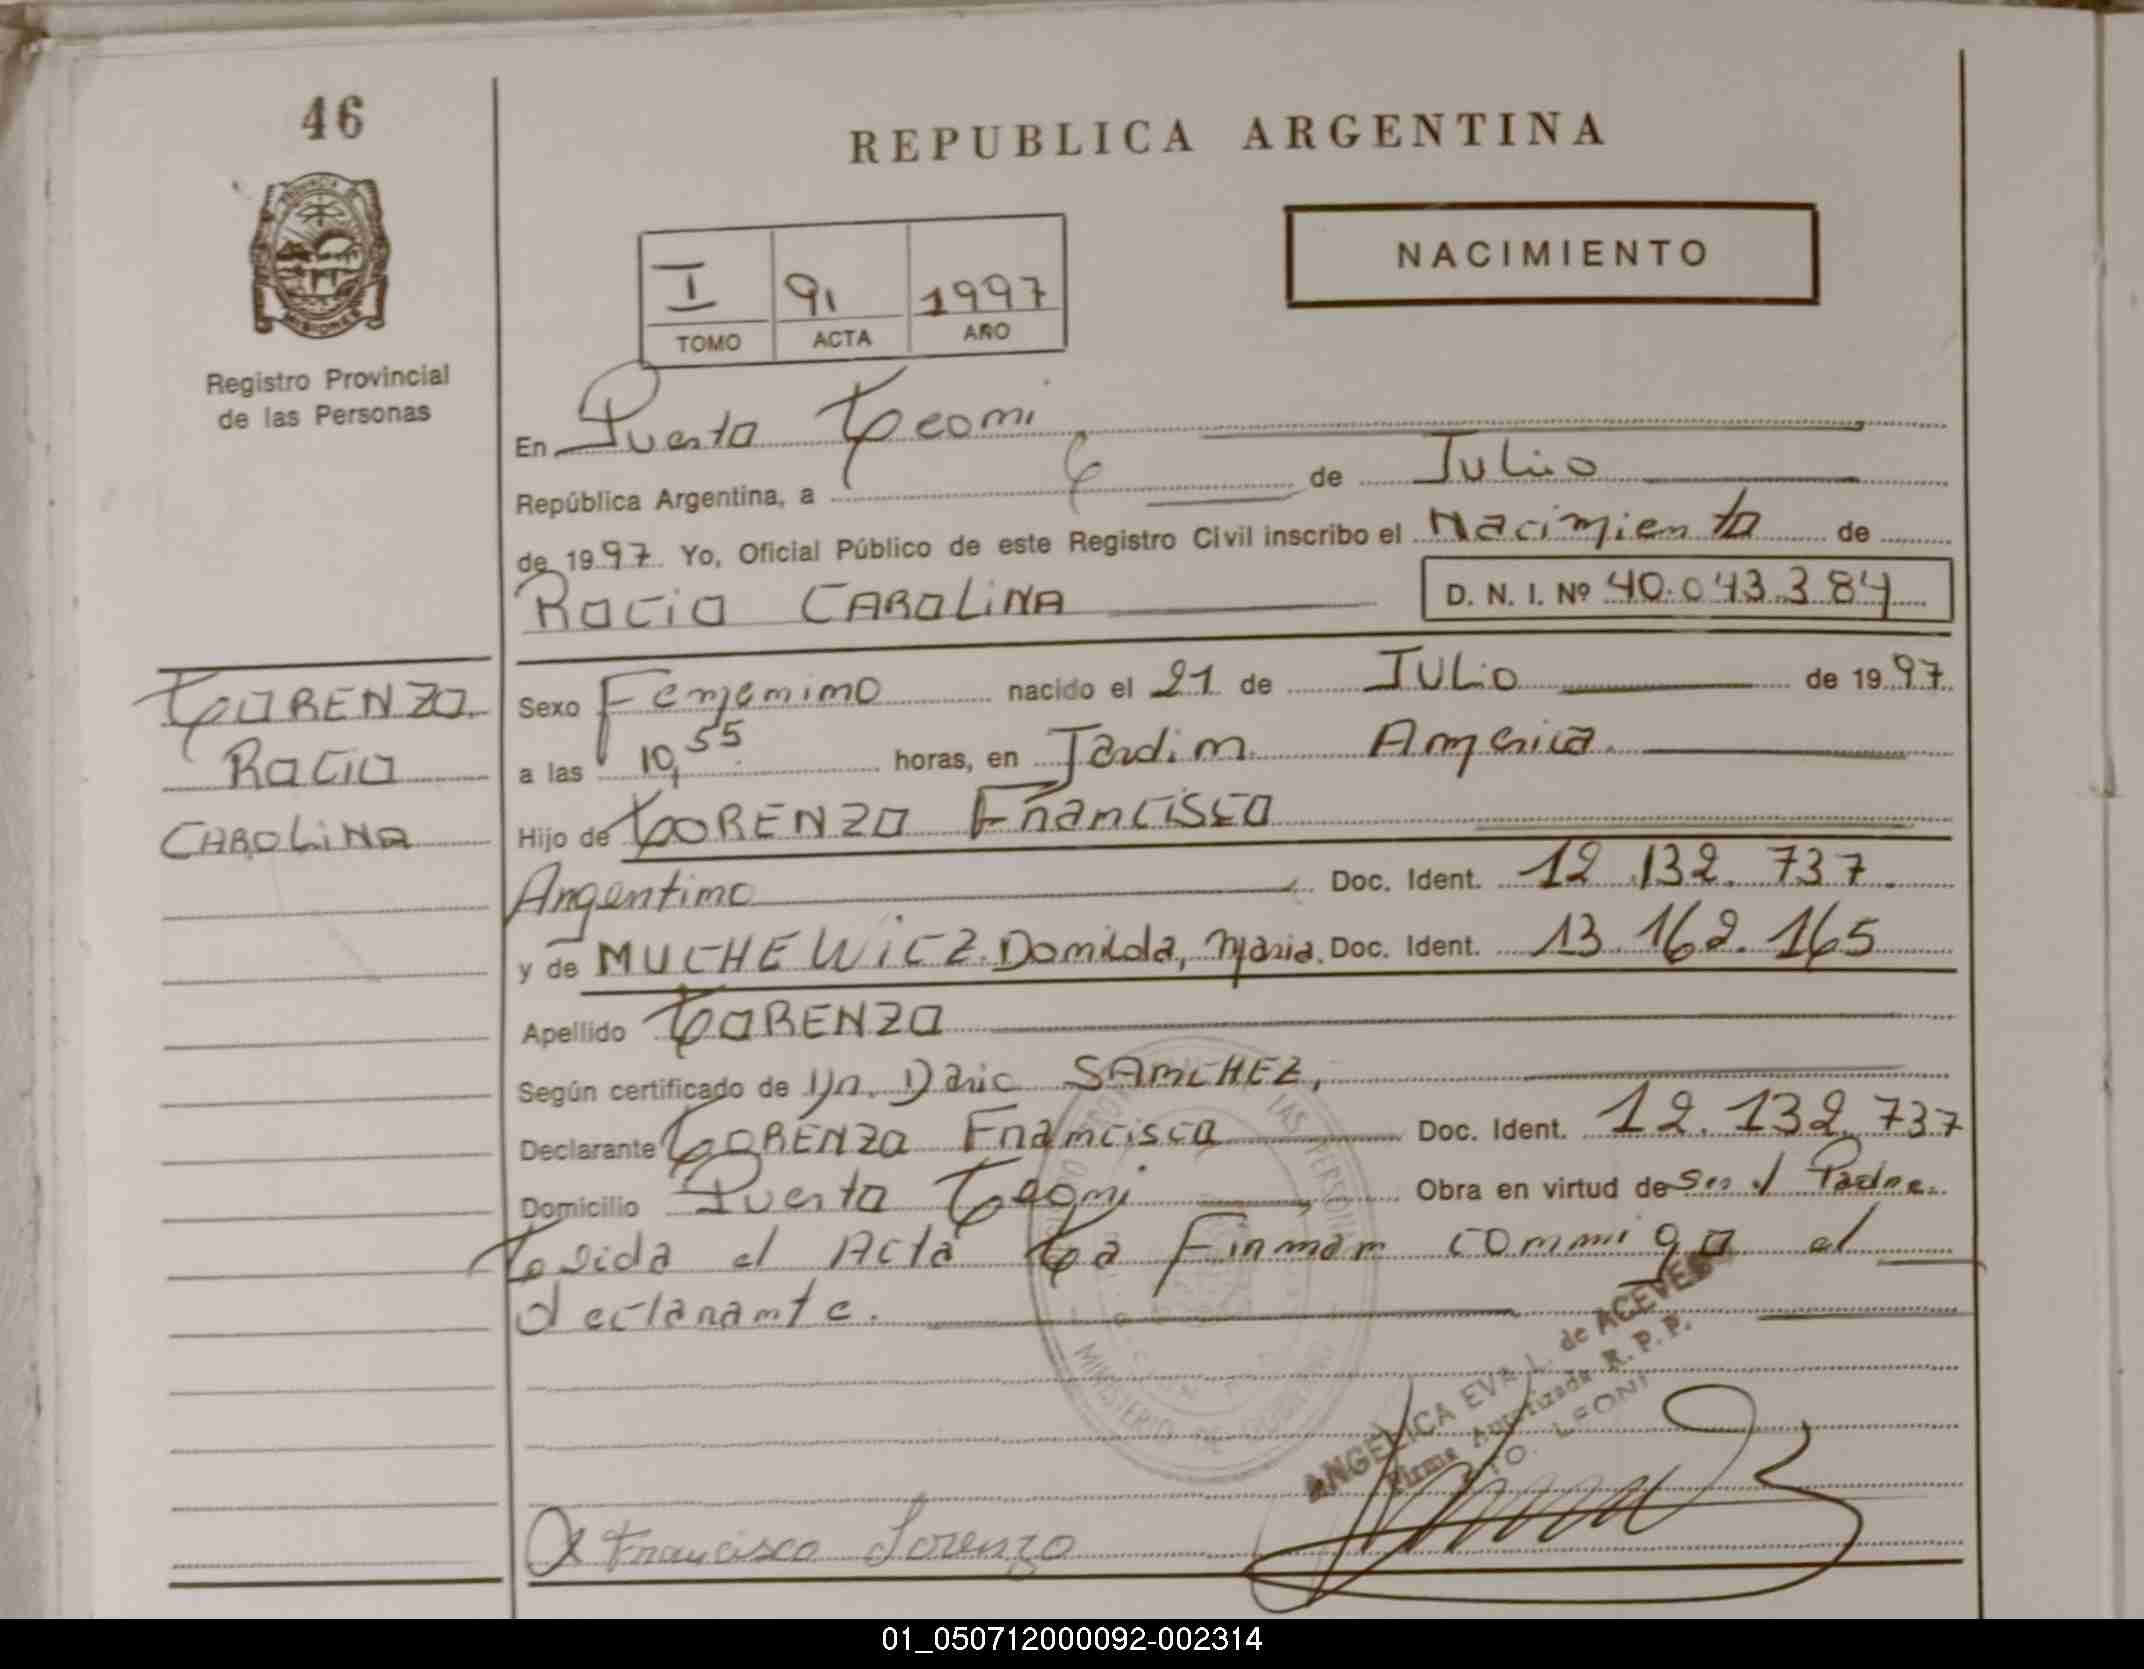 46
REPUBLICA ARGENTINA
NACIMIENTO
PROVINCIA
MISIONES
I 91 1997
TOMO ACTA AÑO
Registro Provincial
de las Personas
En Puerto Leoni
República Argentina, a 6 de Julio
de 1997 Yo, Oficial Público de este Registro Civil inscribo el Nacimiento de
ROCIO CAROLINA D. N. I. Nº 40.043.384
LORENZO
ROCIO
CAROLINA
Sexo Femenino nacido el 21 de JULIO de 1997
a las 10,55 horas, en Jardin America
Hijo de LORENZO Francisco
Argentino Doc. Ident. 12.132.737
y de MUCHEWICZ Domilda, Maria. Doc. Ident. 13.162.165
Apellido LORENZO
Según certificado de Dr. Dario SANCHEZ,
Declarante LORENZO Francisco Doc. Ident. 12.132.737
Domicilio Puerto Leoni Obra en virtud de Ser el Padre.
Leida el Acta La Firman conmigo el
declarante.
LAS PERSONAS
MINISTERIO DE GOBIERNO
ANGELICA EVA L. de ACEVEDO
Firma Autorizada R. P. P.
PTO. LEONI
Francisco Lorenzo
01_050712000092-002314